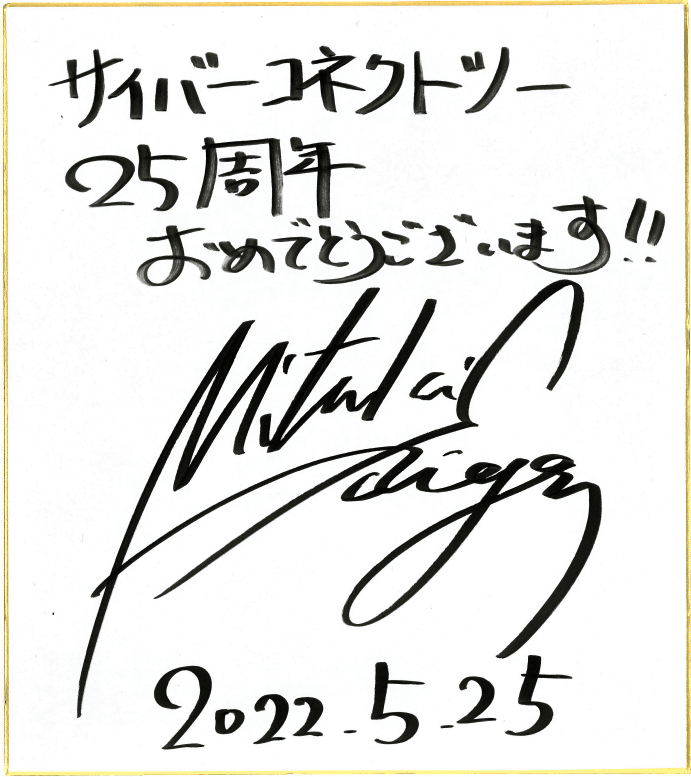 サイバーコネクトツー
25周年
おめでとうございます!!
2022.5.25